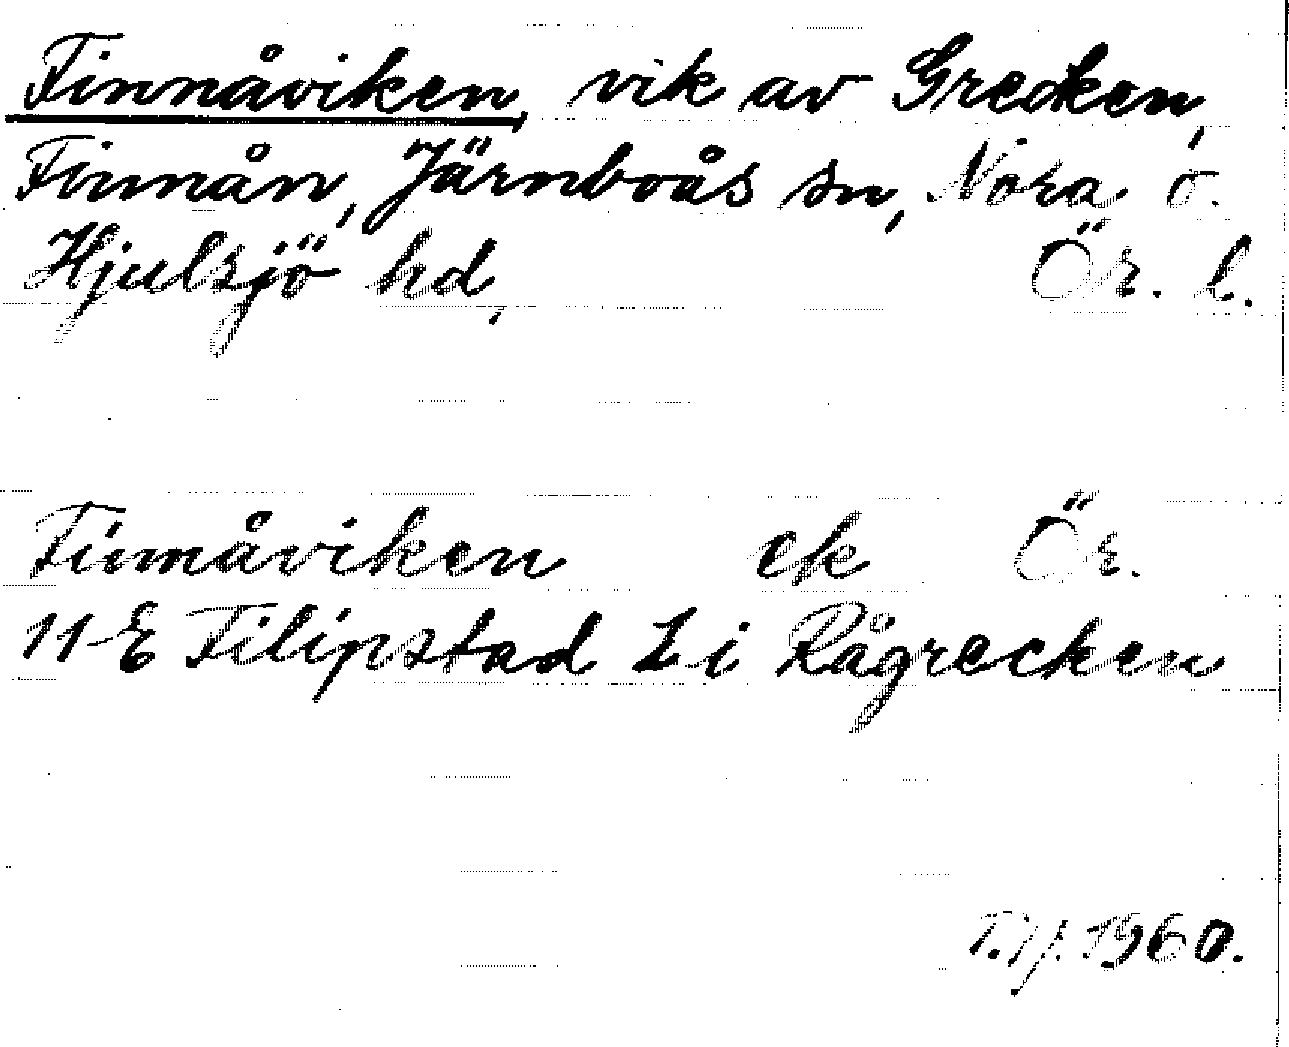 Finnåviken, vik av Grecken,
Finnån, Järnboås sn, Nora o.
Hjulsjö hd, Ör. l.
Finnåviken ek Ör.
11 E Filipstad i Rågrecken
1960.